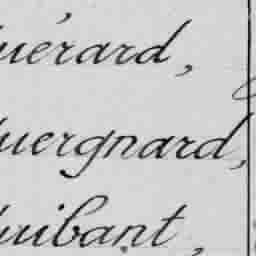 uérard,
uergnard,
uibant,